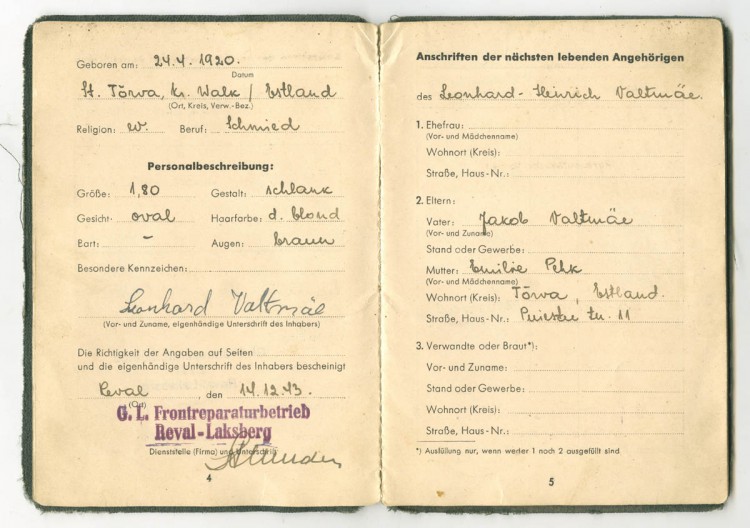 Geboren am: 24.4.1920.
Datum
St. Tõrva, Kr. Walk / Estland
(Ort, Kreis, Verw.-Bez.)
Religion: ev. Beruf: Schmied
Personalbeschreibung:
Größe: 1,80 Gestalt: schlank
Gesicht: oval Haarfarbe: d. blond
Bart: – Augen: braun
Besondere Kennzeichen:
Leonhard Valtmäe
(Vor- und Zuname, eigenhändige Unterschrift des Inhabers)
Die Richtigkeit der Angaben auf Seiten
und die eigenhändige Unterschrift des Inhabers bescheinigt
Reval, den 14.12.43.
(Ort)
G. L. Frontreparaturbetrieb
Reval-Laksberg
Dienststelle (Firma) und Unterschrift
4
Anschriften der nächsten lebenden Angehörigen
des Leonhard-Heinrich Valtmäe.
1. Ehefrau:
(Vor- und Mädchenname)
Wohnort (Kreis):
Straße, Haus-Nr.:
2. Eltern:
Vater: Jakob Valtmäe
(Vor- und Zuname)
Stand oder Gewerbe:
Mutter: Emilie Pehk
(Vor- und Mädchenname)
Wohnort (Kreis): Tõrva, Estland.
Straße, Haus-Nr.: 11
3. Verwandte oder Braut*):
Vor- und Zuname:
Stand oder Gewerbe:
Wohnort (Kreis):
Straße, Haus-Nr.:
*) Ausfüllung nur, wenn weder 1 noch 2 ausgefüllt sind
5